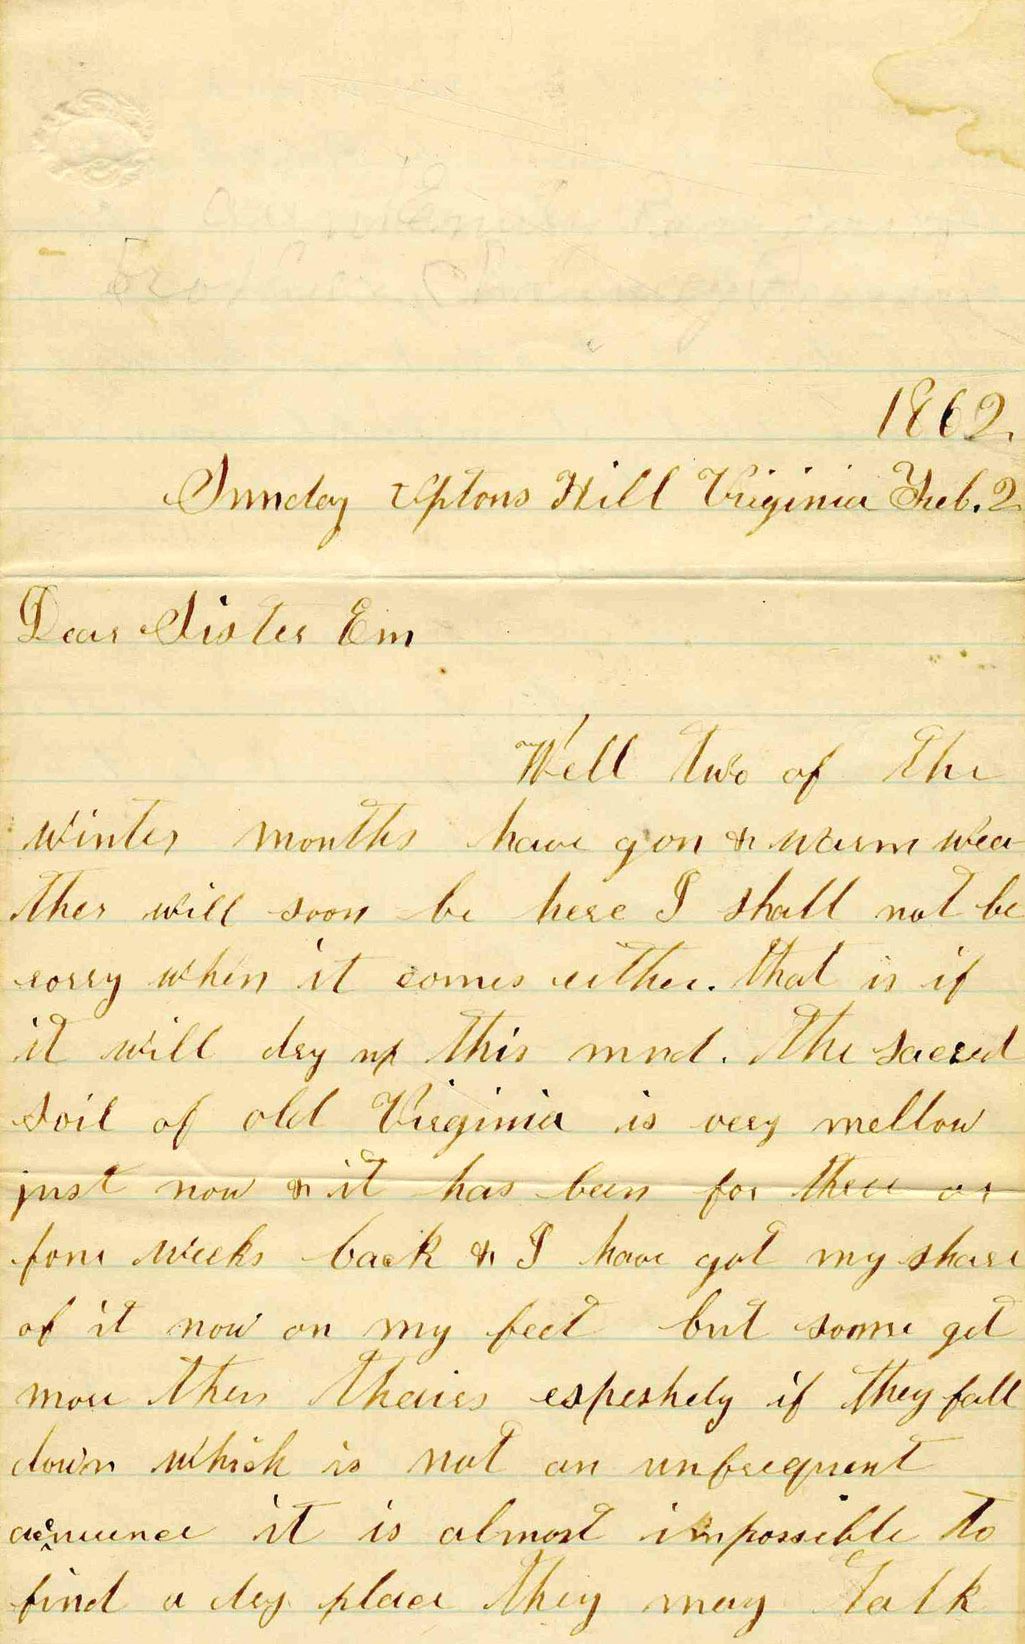 1862.
Sunday Uptons Hill Virginia Feb. 2
Dear Sister Em
Well two of the
winter months have gon & warm wea
ther will soon be here I shall not be
sorry when it comes either. that is if
it will dry up this mud. the sacred
soil of old Virginia is very mellow
just now & it has been for three or
four weeks back & I have got my share
of it now on my feet but some get
more then theirs espeshely if they fall
down which is not an unfrequent
it is almost impossible to
find a dry place they may talk